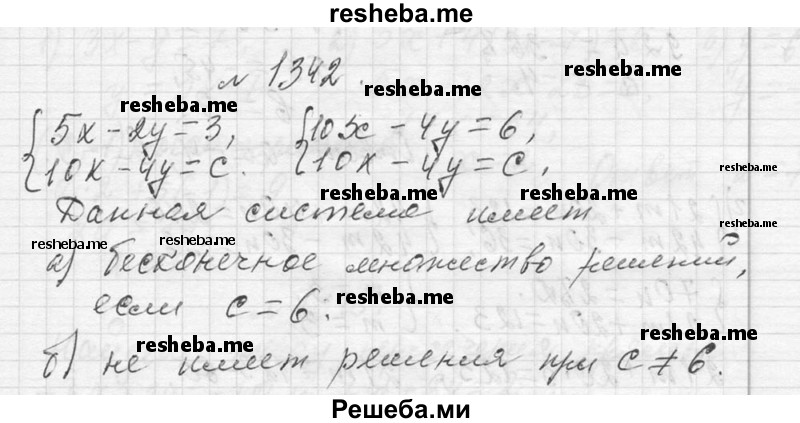 resheba.me
№ 1342. resheba.me
resheba.me
{ 5x - 2y = 3, { 10x - 4y = 6,
{ 10x - 4y = c. { 10x - 4y = c,
resheba.me
resheba.me resheba.me
Данная система имеет
resheba.me resheba.me resheba.me
а) бесконечное множество решений,
если c = 6. resheba.me
resheba.me resheba.me
б) не имеет решения при c ≠ 6.
Решеба.ми